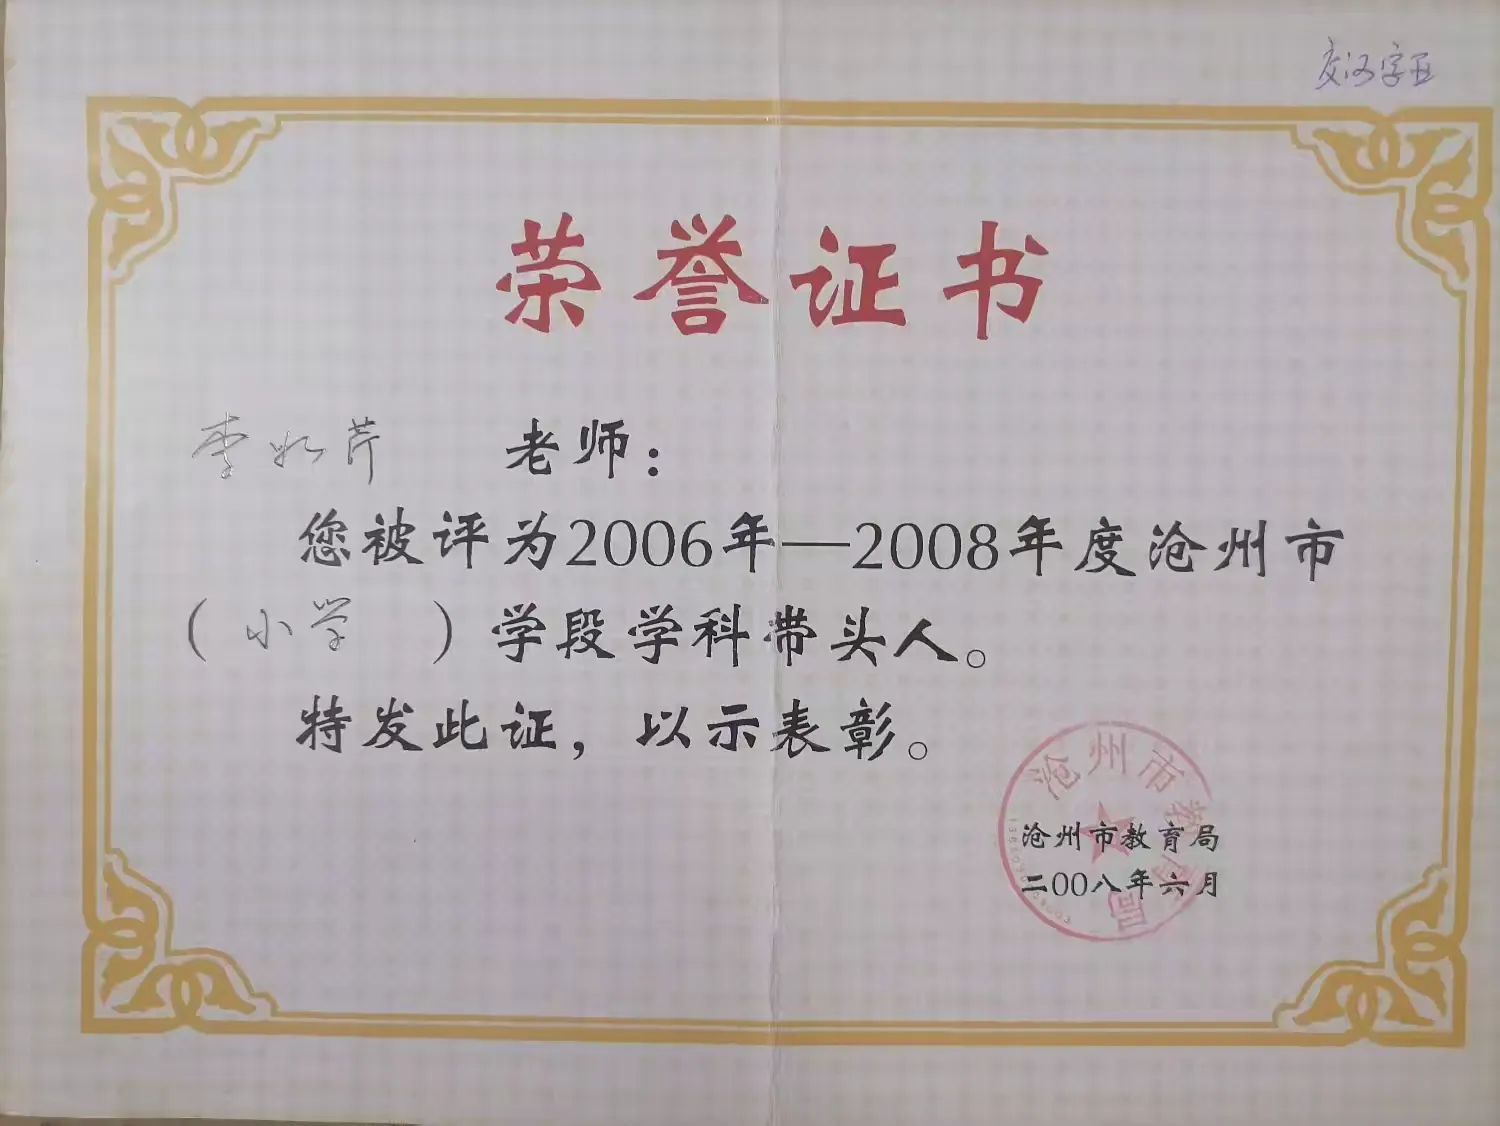 荣誉证书
李如芹 老师：
您被评为2006年—2008年度沧州市
（小学）学段学科带头人。
特发此证，以示表彰。
沧州市教育局
沧州市教育局
二00八年六月